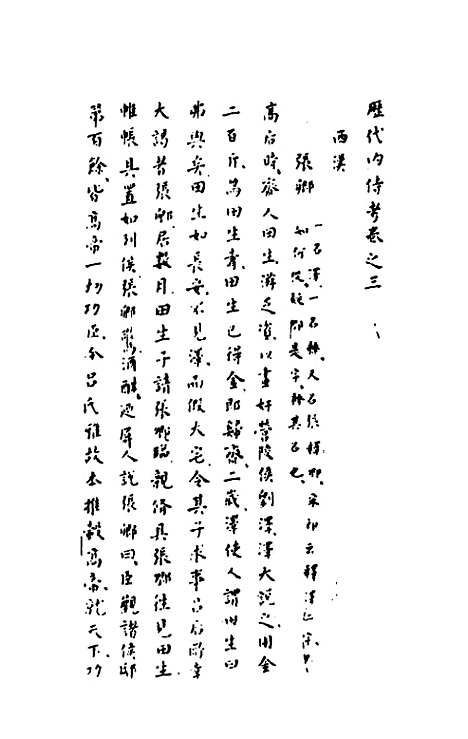 歷代內侍考卷之三
西漢
張卿
一名澤一名釋又名張釋卿宋祁云釋澤
如何反疑卿是字釋其名也
高后時齊人田生游乏資以畫奸營陵侯劉澤澤大說之用金
二百斤為田生壽田生已得金即歸齊二歲澤使人謂田生曰
弗與矣田生如長安不見澤而假大宅令其子求事呂后所幸
大謁者張卿居數月田生子請張卿臨親修具張卿往見田生
帷帳具置如列侯張卿驚酒酣迺屏人說張卿曰臣觀諸侯邸
第百餘皆高帝一切功臣今呂氏雅故本推轂高帝就天下功